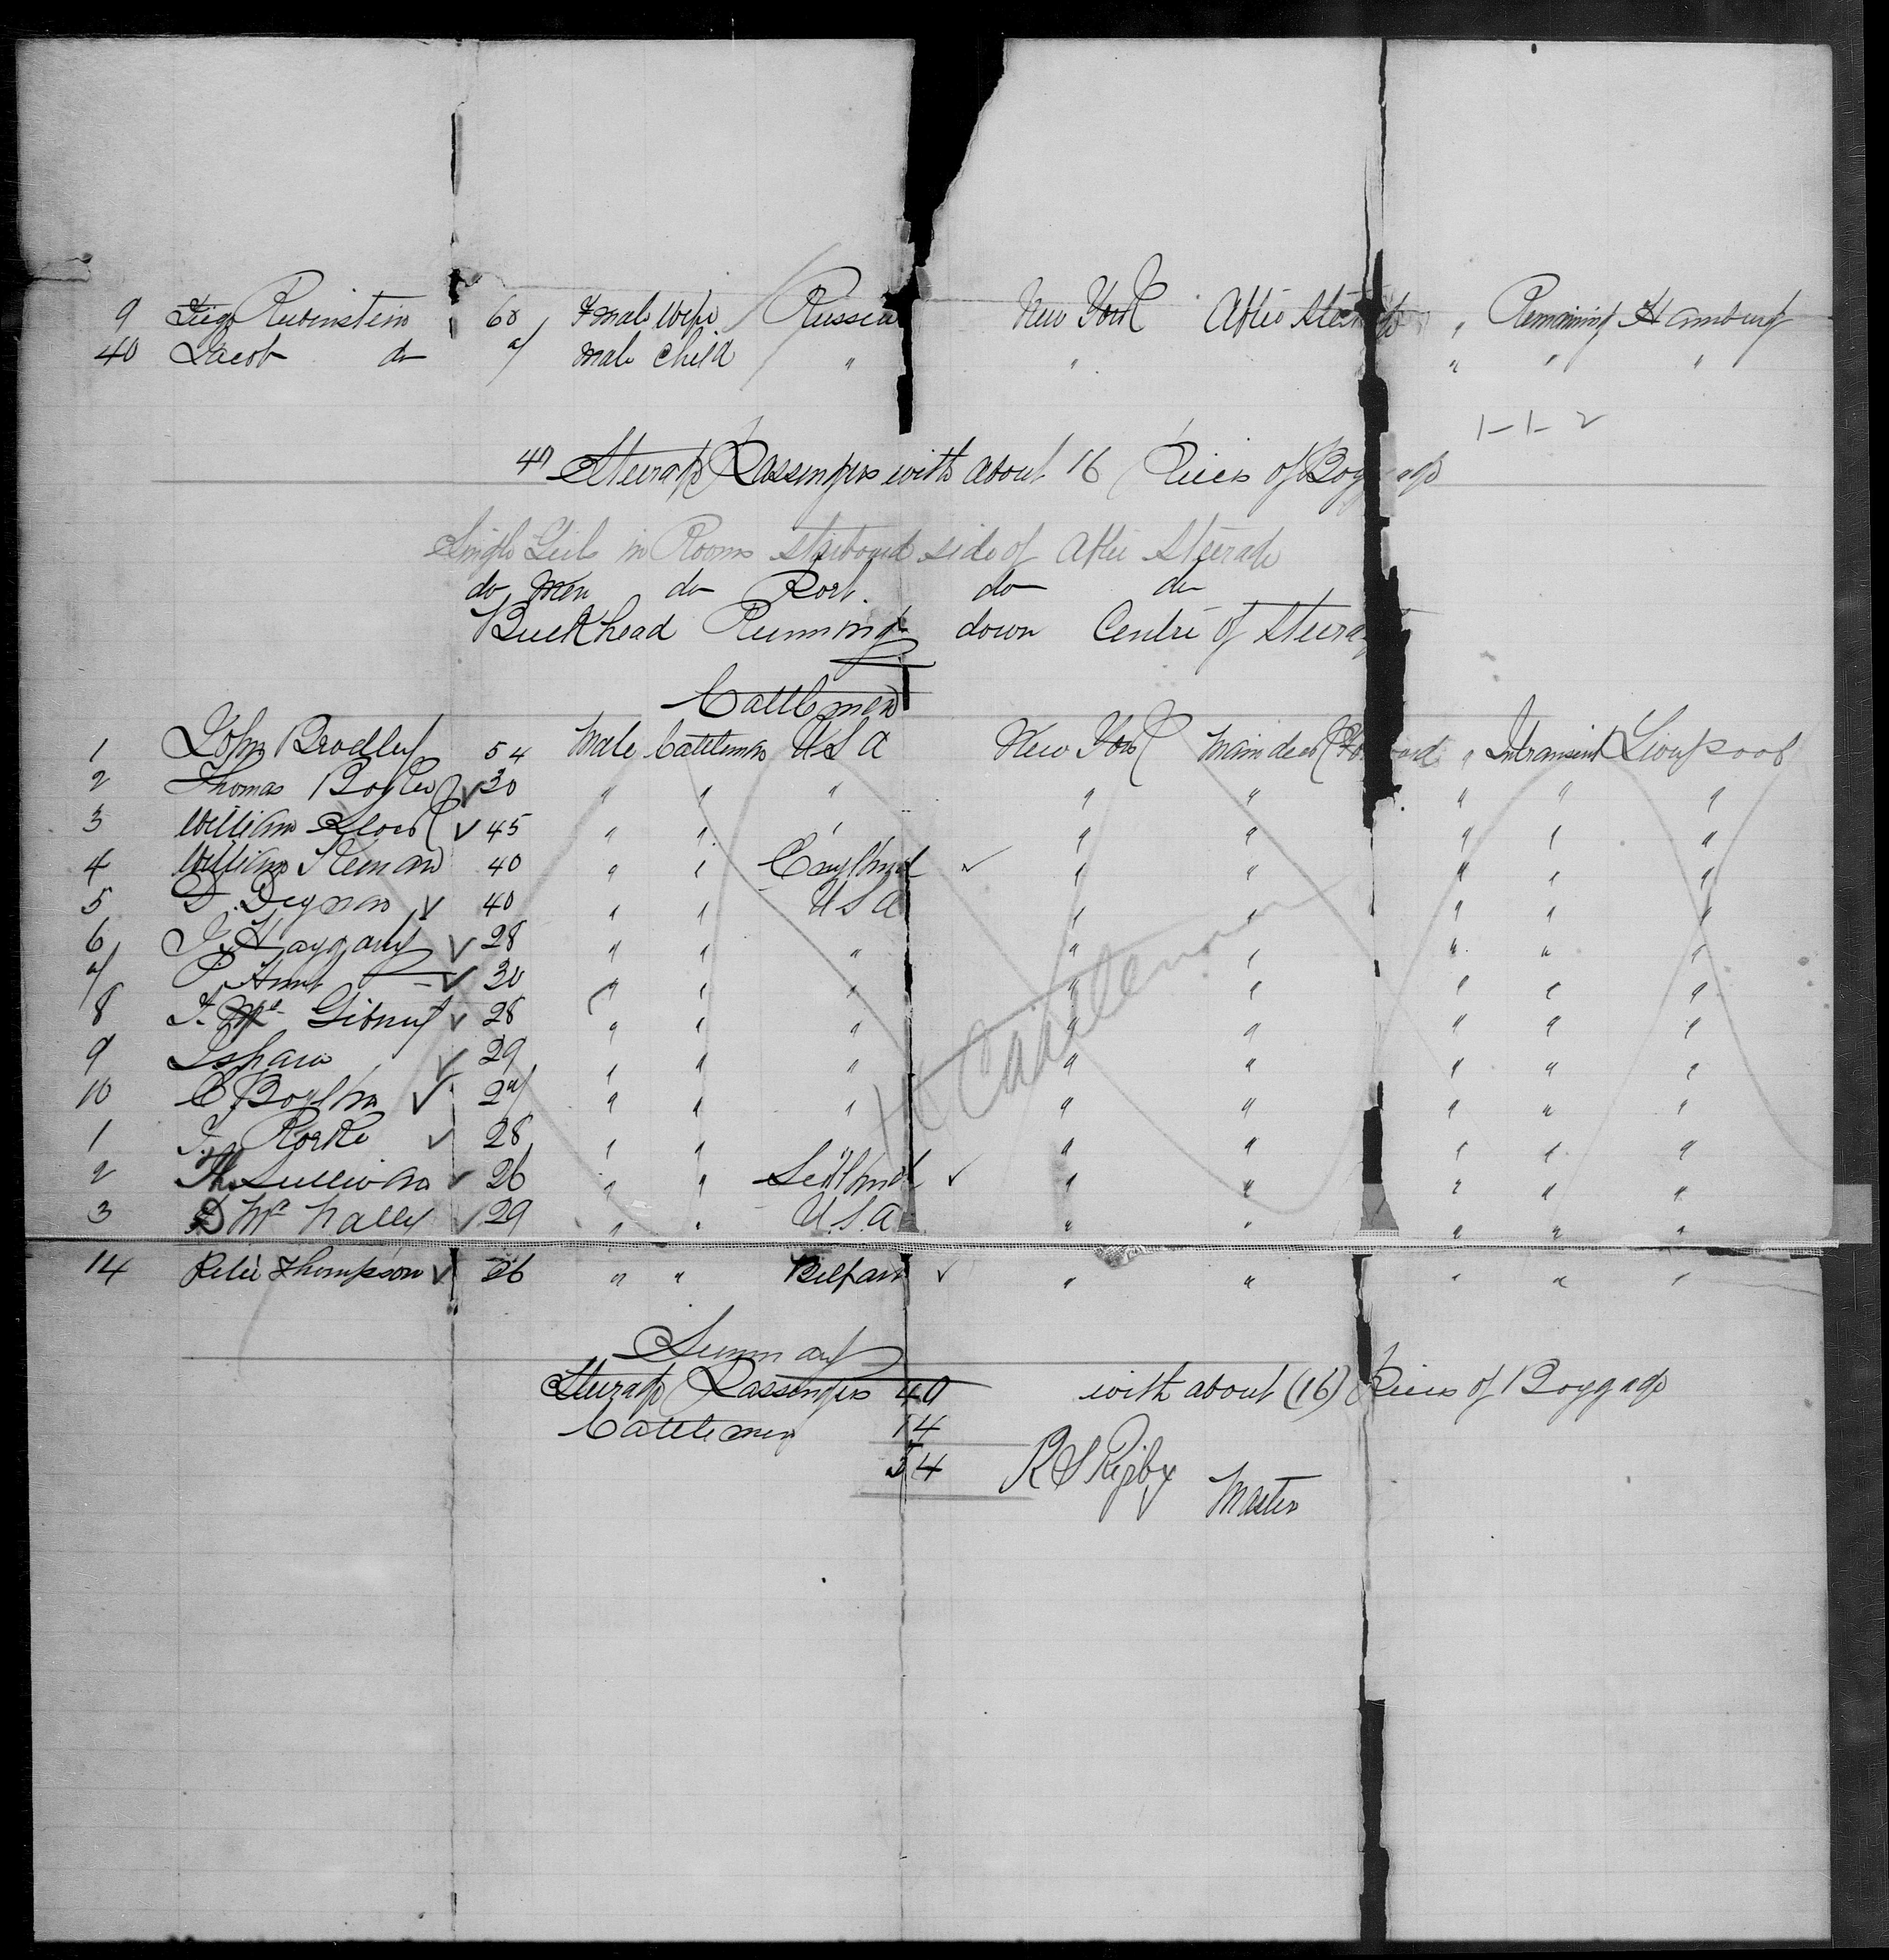 9 Rubinstein 60 Female Wife Russia New York After Steerage " Remaining Hamburg
40 Jacob do 7 Male Child " " " " "
1-1-2
40 Steerage Passengers with about 16 Pieces of Baggage
Single Girls in Rooms starboard side of After Steerage
do Men do Port do do
Bulkhead Running down Centre of Steerage
Cattlemen
1 John Bradley 54 Male Cattleman USA New York Main deck Forward " Intransit Liverpool
2 Thomas ✓ 30 " " " " " " " "
3 William ✓ 45 " " " " " " " "
4 William 40 " " England ✓ " " " " "
5 D. Degnan ✓ 40 " " USA " " " " "
6 J. Haggarty ✓ 28 " " " " " " " "
7 P. Hunt ✓ 30 " " " " " " " "
8 Gibney ✓ 28 " " " " " " " "
9 J Shaw ✓ 29 " " " " " " " "
10 C Boylan ✓ 27 " " " " " " " "
1 J. Rorke ✓ 28 " " " " " " "
2 Sullivan ✓ 26 " " ✓ " " " " "
3 D Mc Nally ✓ 29 " " U.S.A " " " " "
14 Peter Thompson ✓ 26 " " Belfast ✓ " " " " "
Cattlemen
Summary
Steerage Passengers 40 with about (16) Pieces of Baggage
Cattlemen 14
54 R S Rigby Master